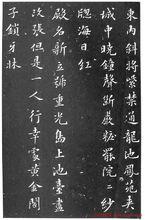 東內斜將紫禁通龍池鳳苑夾
城中曉鐘聲斷嚴粧罷院二紗
牕海日紅
殿名新立號重光島上池臺盡
改張但是一人行幸處黃金閣
子鎖牙牀